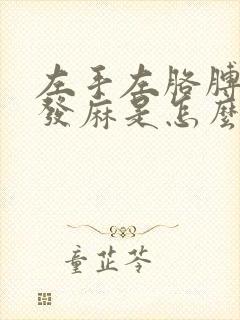 左手左胳膊
發麻是怎麼
童芷苓